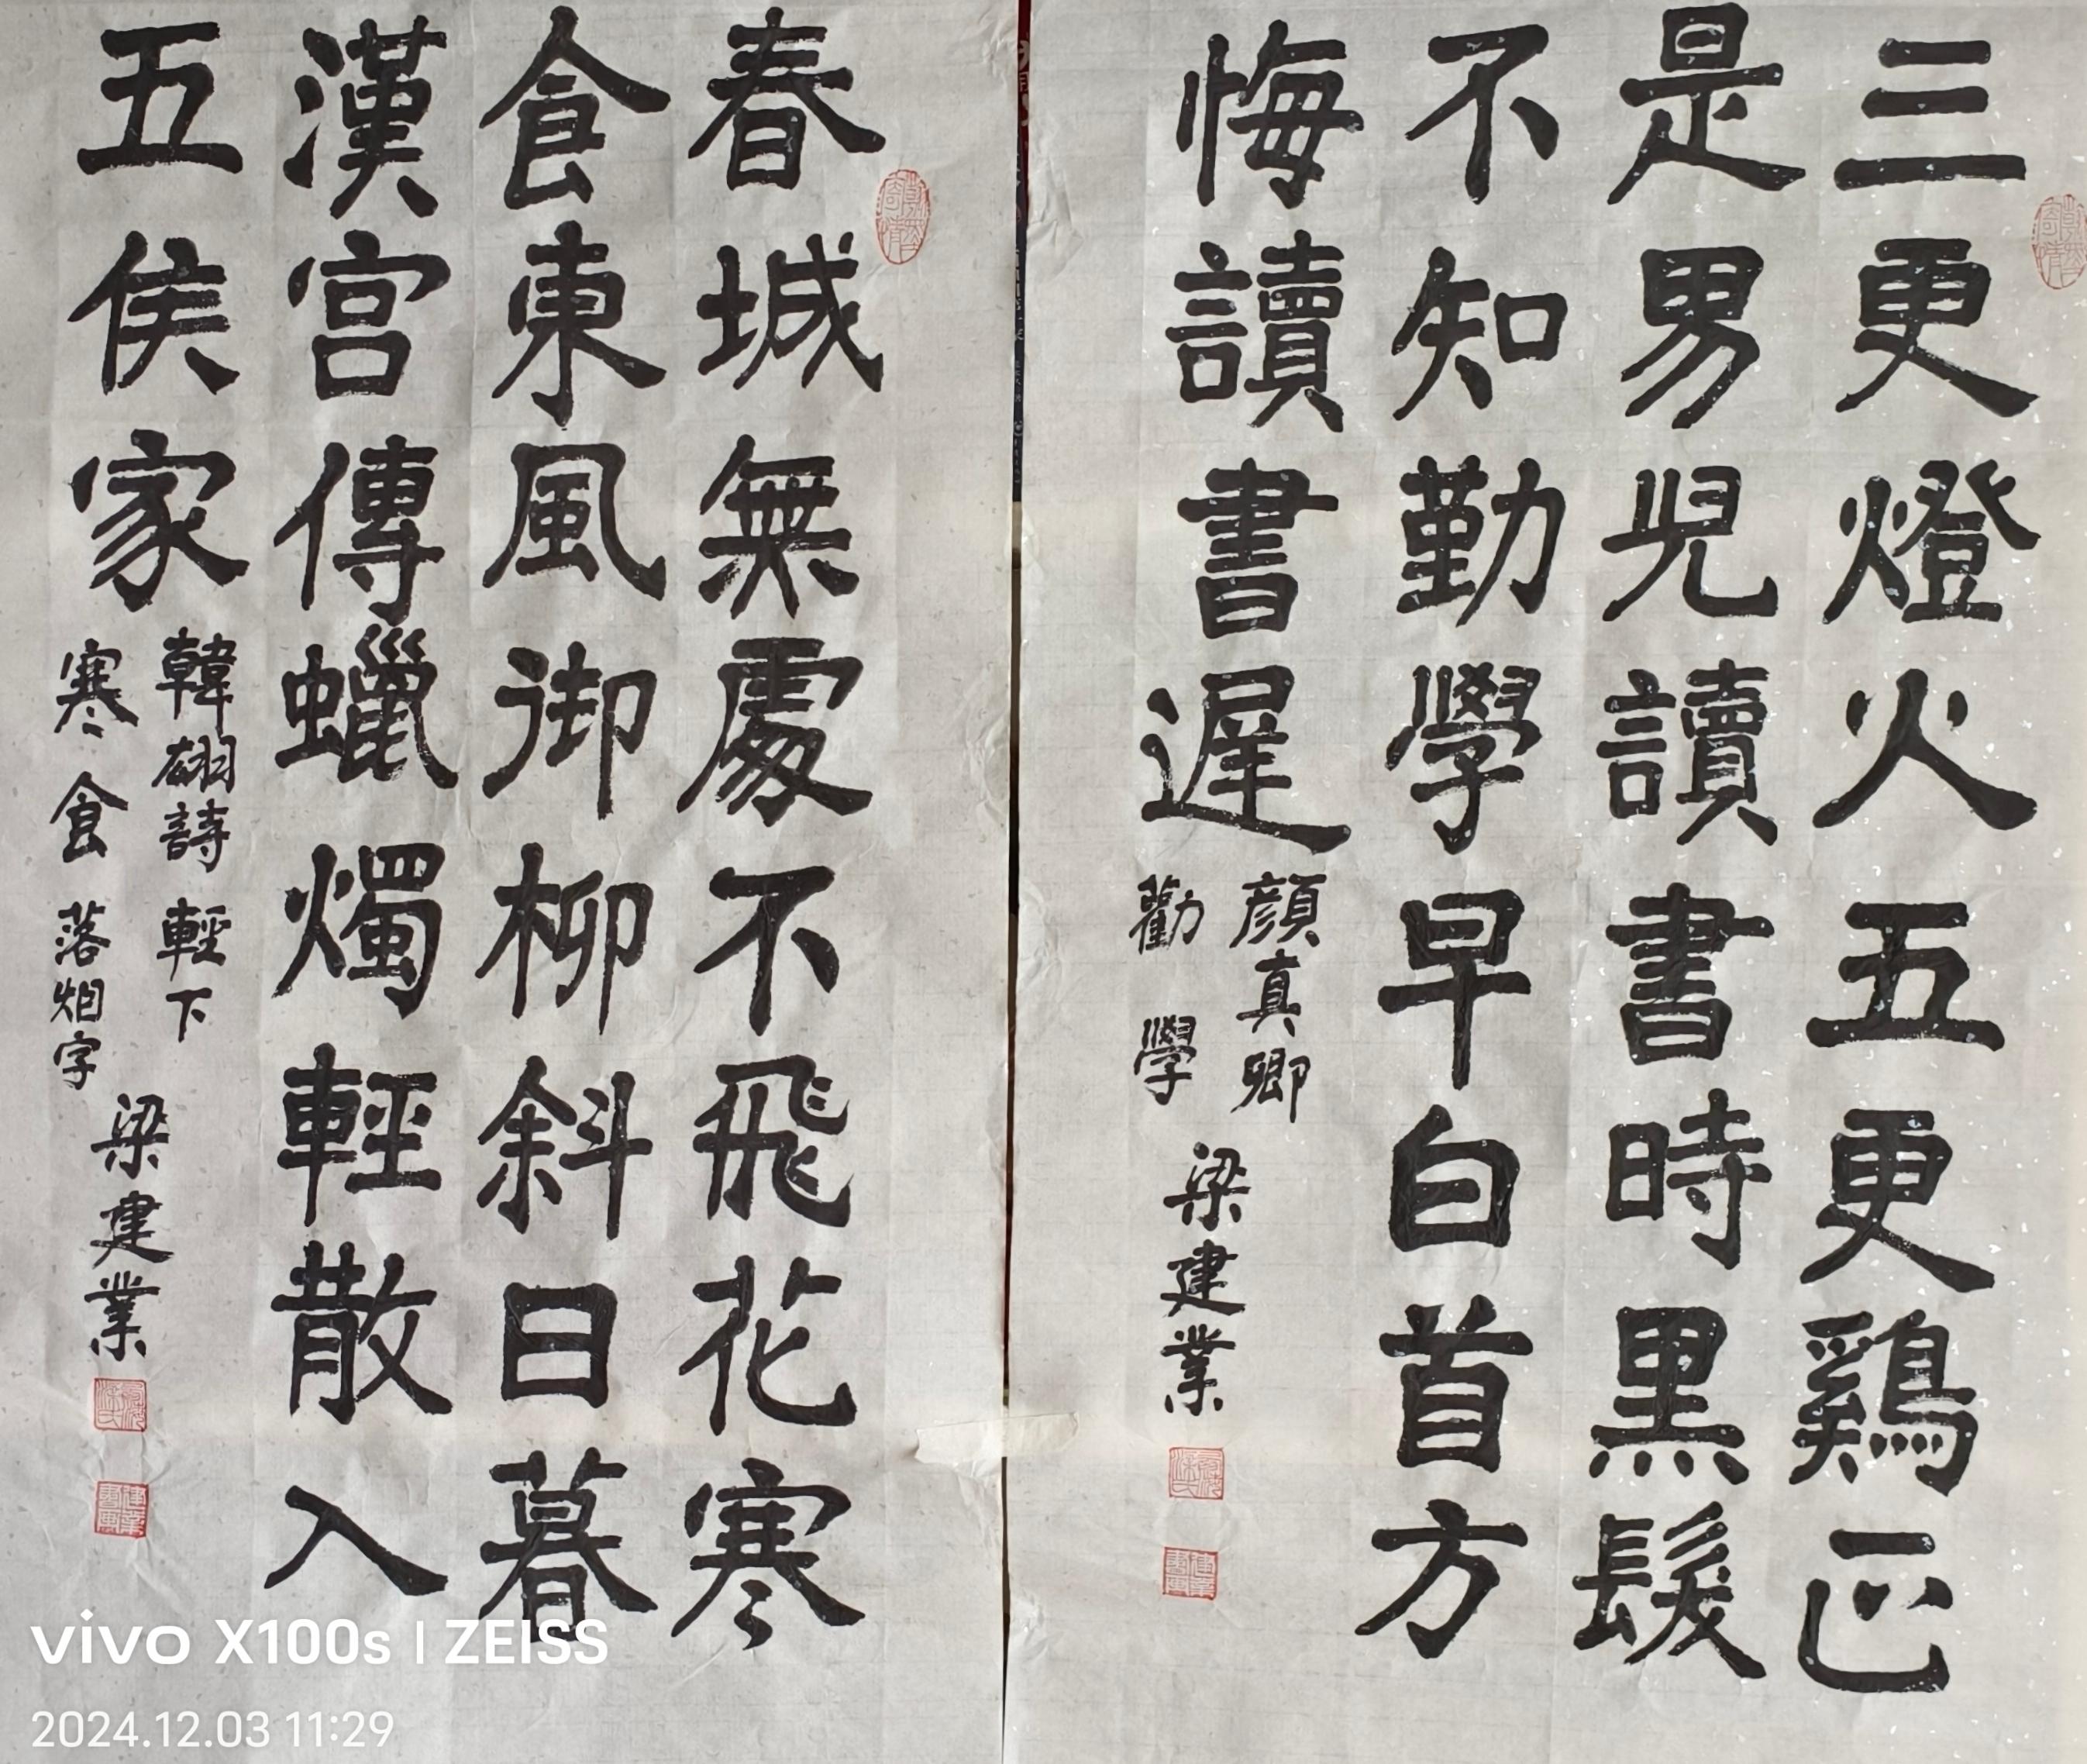 三更燈火五更鷄正
是男児讀書時黑髮
不知勤學早白首方
悔讀書遲
顔真卿
勸學
梁建業
春城無處不飛花寒
食東風御柳斜日暮
漢宫傳蠟燭輕散入
五侯家
韓翃詩 輕下
寒食 落烟字
梁建業
vivo X100s | ZEISS
2024.12.03 11:29